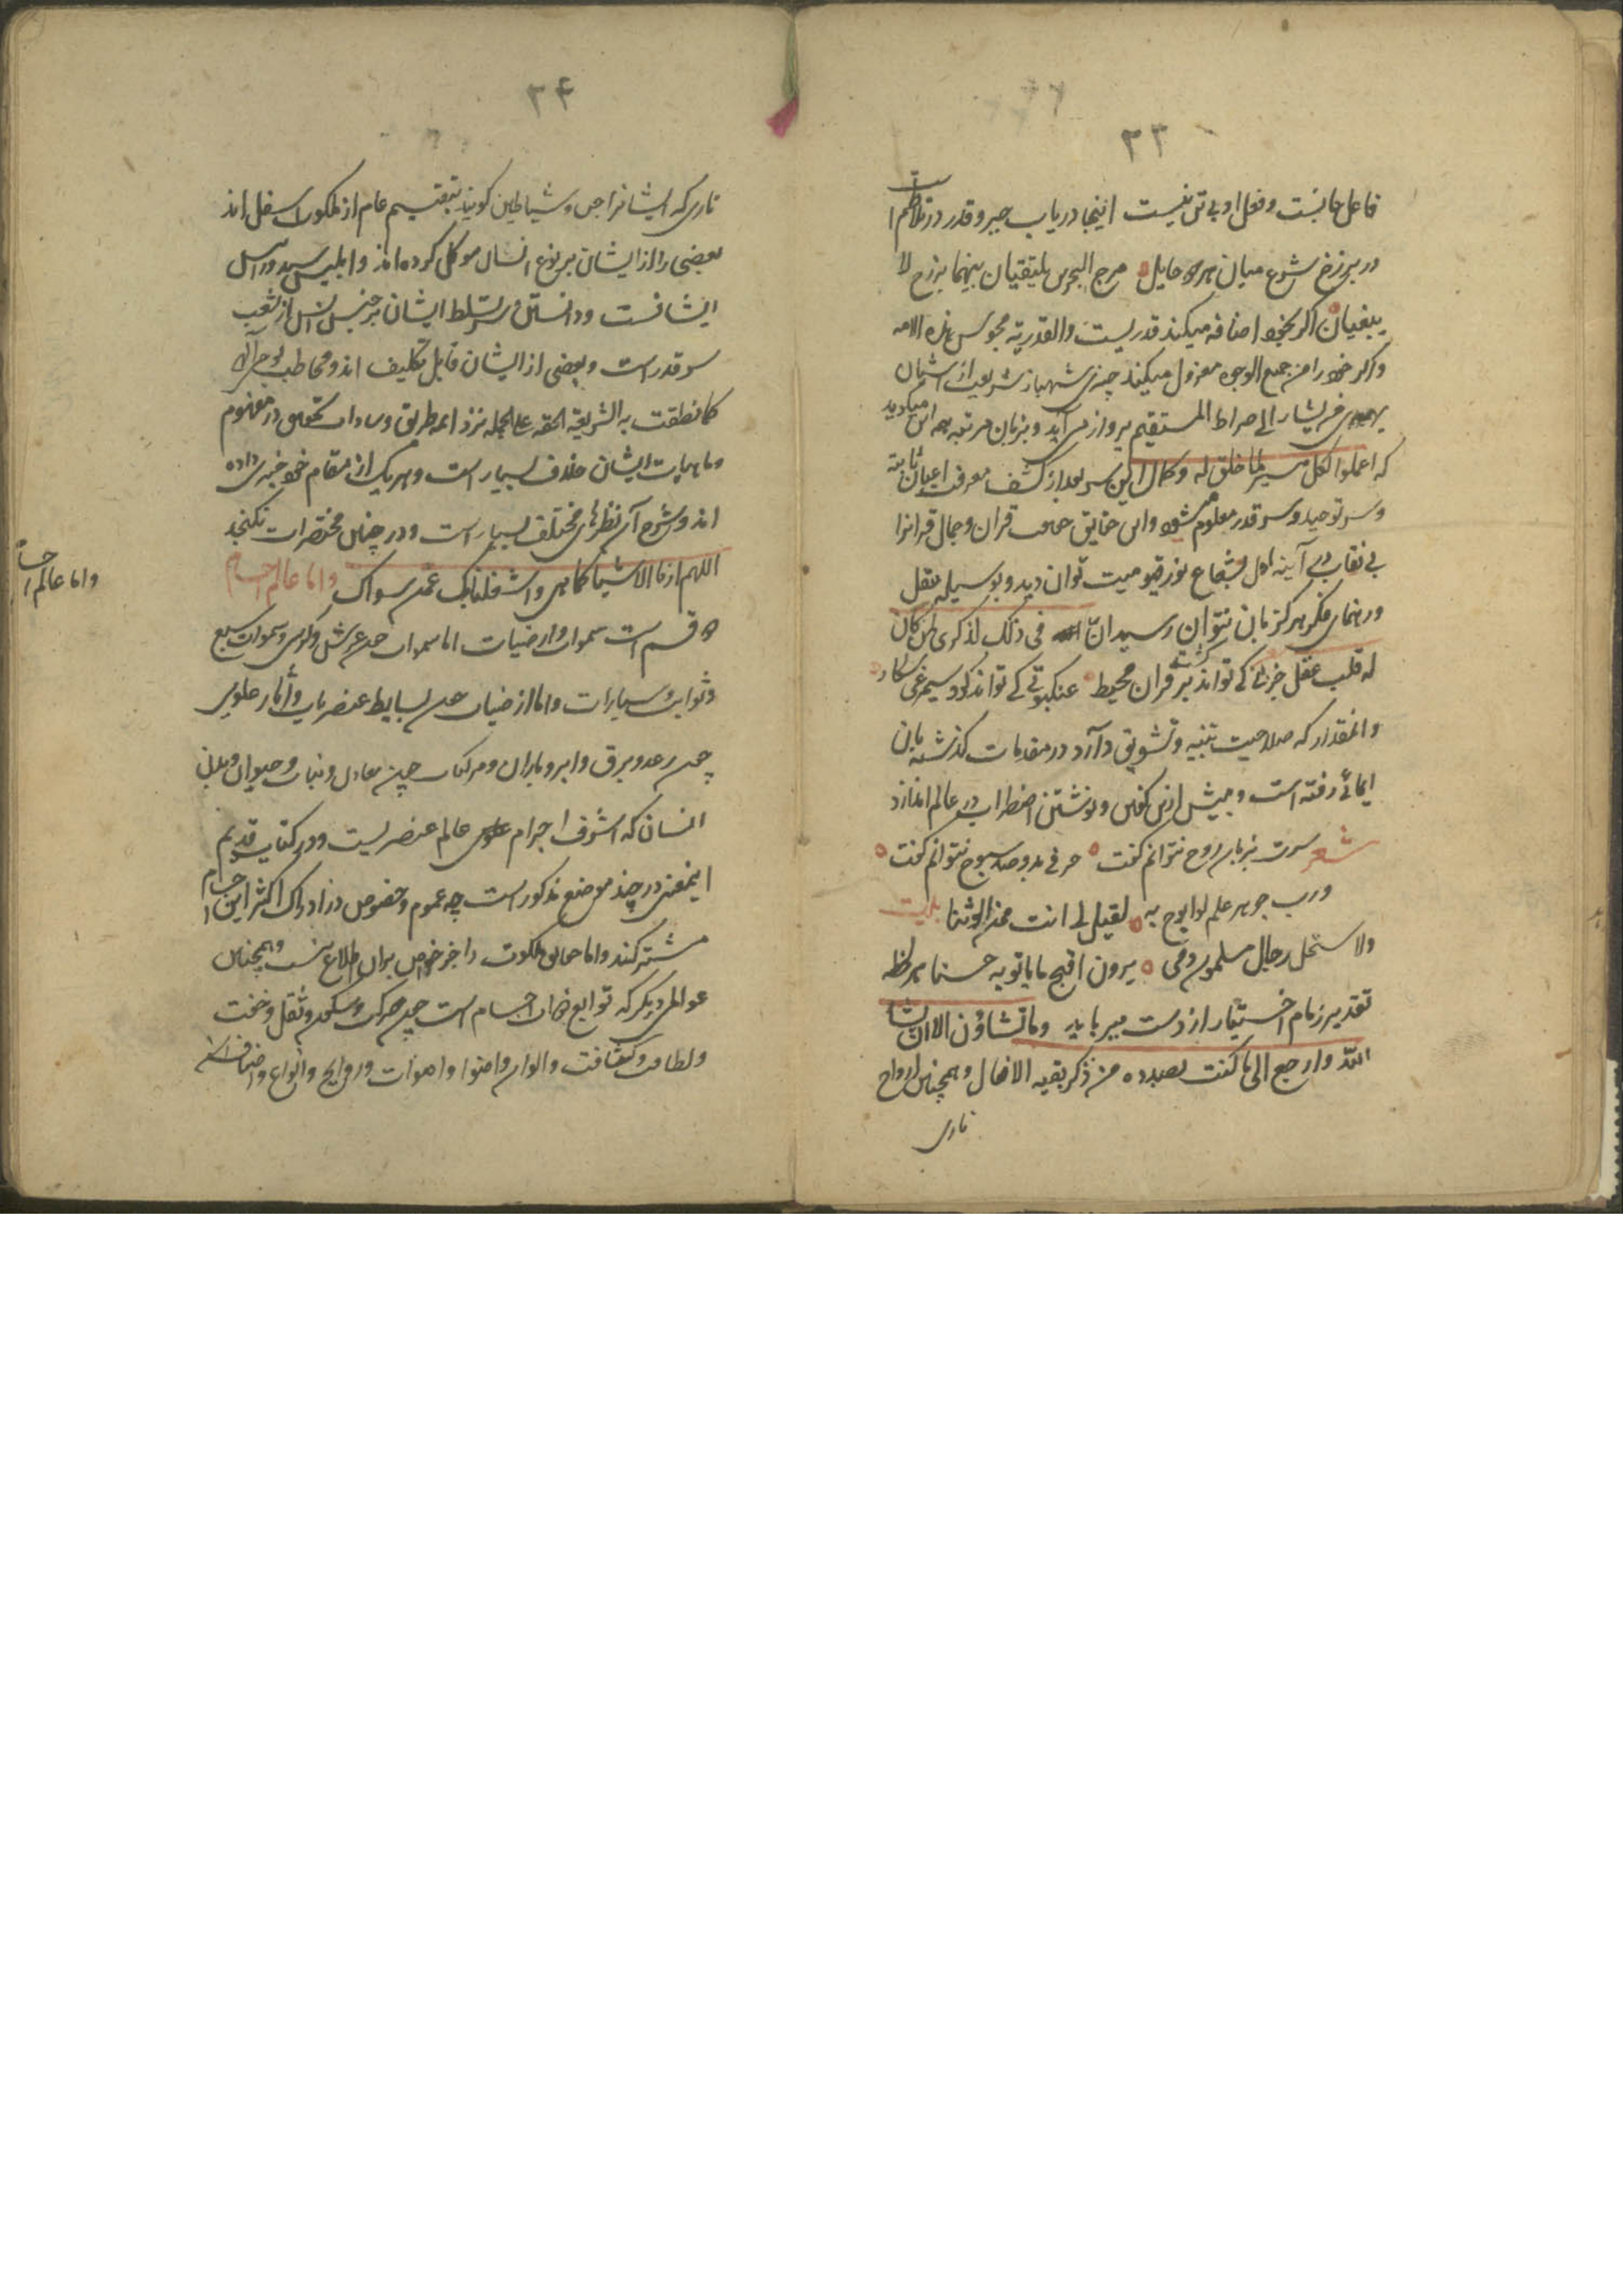 ۳۳
فاعل جانست و فعل او بی تن نیست اینجا دریاب جبر و قدر در تلاطم است
در برزخ شرع میان هر دو حایل مرج البحرین یلتقیان بینهما برزخ لا
یبغیان اگر بخود اضافه میکند قدریست والقدریة مجوس هذه الامه
و اگر خود را من جمیع الوجوه معزول میکند جبری شهباز شریعت از آشیان
یهدی من یشاء الی صراط المستقیم پرواز می آید و بزبان مرتبه میگوید
که اعملوا فکل میسر لما خلق له و کمال این سر بعد از کشف معرفت اعیان ثابته
و سر توحید و سر قدر معلوم شود و این حقایق قرآن و جمال قرآنرا
بی نقاب در آینه دل بشعاع نور قیومیت توان دید و بوسیله عقل
و رهنمای فکر هرگز بآن نتوان رسید ان فی ذلک لذکری لمن کان
له قلب عقل جزئی کی تواند گشت بر قرآن محیط عنکبوتی کی تواند کرد سیمرغی شکار
و آنمقدار که صلاحیت تنبیه و تشویق دارد در مقدمات گذشته بآن
ایمائی رفته است و بیش ازین گفتن و نوشتن اضطراب در عالم اندازد
شعر سرت بزبان روح نتوانم گفت حرفی بدو صد سبوح نتوانم گفت
و رب جوهر علم لو ابوح به لقیل لی انت ممن یعبد الوثنا بیت
ولاستحل رجال مسلمون دمی یرون اقبح ما یاتونه حسنا هر لحظه
تقدیر زمام اختیار از دست میرباید وما تشاؤن الا ان یشا
الله وارجع الی ما کنت بصدده من ذکر بقیه الافعال و همچنین ارواح
ناری
۳۴
ناری که ایشانرا جن و شیاطین گویند بتقسیم عام از ملکوت اسفل اند
بعضی را از ایشان بر نوع انسان موکل کرده اند و ابلیس سید و رئیس
ایشانست و دانستن سر تسلط ایشان بر جنس انس از شعب
سر قدر است و بعضی از ایشان قابل تکلیف اند و مخاطب بوحی اله
کما نطقت به الشریعة الحقه علی الجمله نزد ائمه طریق و سادات تحقیق در مفهوم
و ماهیات ایشان خلاف بسیار است و هر یک از مقام خود خبری داده
اند و شرح آن نظرهای مختلف بسیار است و در چنین مختصرات نگنجد
اللهم ارنا الاشیا کما هی و اشغلنا بک عمن سواک و اما عالم اجسام
دو قسم است سموات و ارضیات اما سموات چون عرش و کرسی و سموات سبع
و ثوابت و سیارات و اما ارضیات چون بسایط عنصریات و آثار علوی
چون رعد و برق و ابر و باران و مرکبات چون معادن و نبات و حیوان و بدن
انسان که اشرف اجرام عالم عنصریست و در کتاب قدیم
اینمعنی در چند موضع مذکور است چه عموم و خصوص در ادراک اکثر این اجسام
مشترکند و اما حقایق ملکوت را جز خواص بران اطلاع نیست و همچنین
عوالم دیگر که توابع اجسام است چون حرکت و سکون و ثقل و خفت
و لطافت و کثافت و الوان و اضوا و اصوات و روایح و انواع و اصناف
و اما عالم اجسا